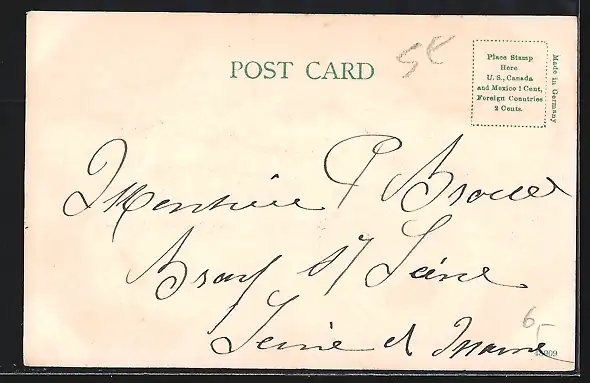 POST CARD
5E
Place Stamp
Here
U. S., Canada
and Mexico 1 Cent,
Foreign Countries
2 Cents.
Made in Germany
Monsieur P
Bray s/ Seine
Seine et Marne
65